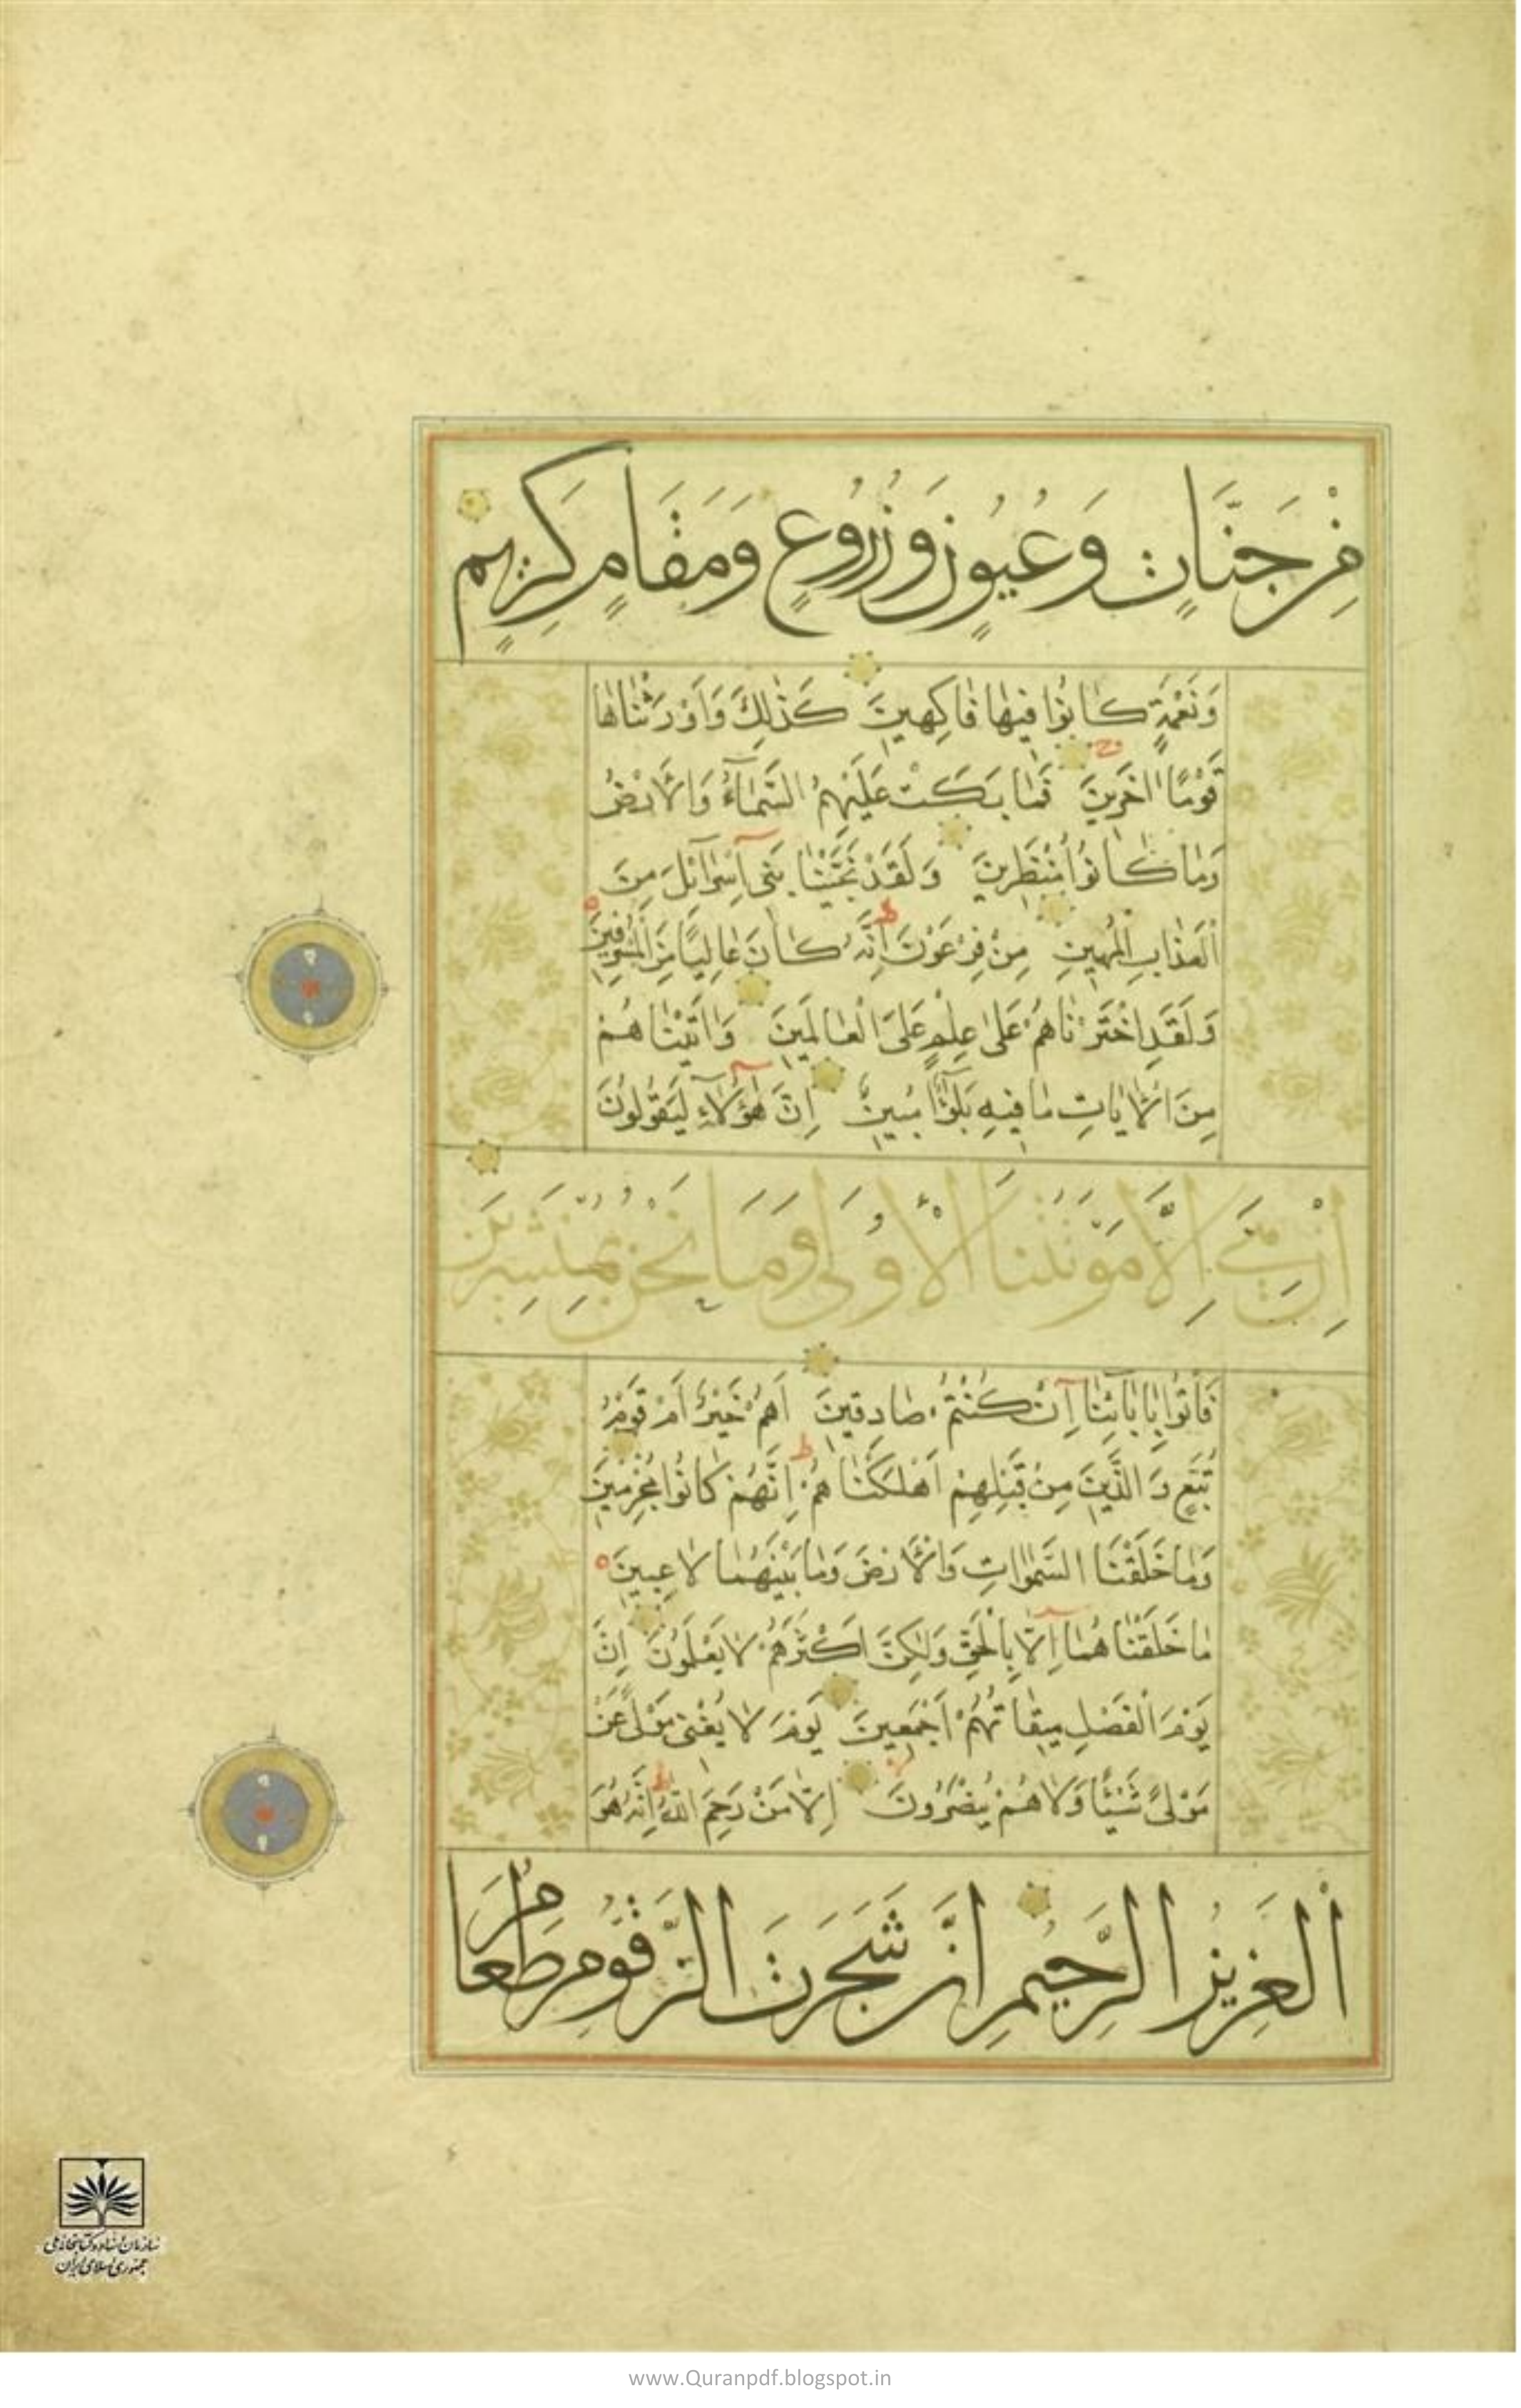 مِنْ جَنَّاتٍ وَعُيُونٍ وَزُرُوعٍ وَمَقَامٍ كَرِيمٍ
وَنَعْمَةٍ كَانُوا فِيهَا فَاكِهِينَ كَذٰلِكَ وَاَوْرَثْنَاهَا
قَوْمًا اٰخَرِينَ فَمَا بَكَتْ عَلَيْهِمُ السَّمَآءُ وَالْاَرْضُ
وَمَا كَانُوا مُنْظَرِينَ وَلَقَدْ نَجَّيْنَا بَنِى اِسْرَآئِلَ مِنَ
الْعَذَابِ الْمُهِينِ مِنْ فِرْعَوْنَ اِنَّهُ كَانَ عَالِيًا مِنَ الْمُسْرِفِينَ
وَلَقَدِ اخْتَرْنَاهُمْ عَلٰى عِلْمٍ عَلَى الْعَالَمِينَ وَاٰتَيْنَاهُمْ
مِنَ الْاٰيَاتِ مَا فِيهِ بَلٰٓؤٌا مُبِينٌ اِنَّ هٰٓؤُلَآءِ لَيَقُولُونَ
اِنْ هِىَ اِلَّا مَوْتَتُنَا الْاُولٰى وَمَا نَحْنُ بِمُنْشَرِينَ
فَأْتُوا بِاٰبَآئِنَآ اِنْ كُنْتُمْ صَادِقِينَ اَهُمْ خَيْرٌ اَمْ قَوْمُ
تُبَّعٍ وَالَّذِينَ مِنْ قَبْلِهِمْ اَهْلَكْنَاهُمْ اِنَّهُمْ كَانُوا مُجْرِمِينَ
وَمَا خَلَقْنَا السَّمٰوَاتِ وَالْاَرْضَ وَمَا بَيْنَهُمَا لَاعِبِينَ
مَا خَلَقْنَاهُمَآ اِلَّا بِالْحَقِّ وَلٰكِنَّ اَكْثَرَهُمْ لَا يَعْلَمُونَ اِنَّ
يَوْمَ الْفَصْلِ مِيقَاتُهُمْ اَجْمَعِينَ يَوْمَ لَا يُغْنِى مَوْلًى عَنْ
مَوْلًى شَيْئًا وَلَا هُمْ يُنْصَرُونَ اِلَّا مَنْ رَحِمَ اللّٰهُ اِنَّهُ هُوَ
الْعَزِيزُ الرَّحِيمُ اِنَّ شَجَرَتَ الزَّقُّومِ طَعَامُ
سازمان اسناد و کتابخانه ملی
جمهوری اسلامی ایران
www.Quranpdf.blogspot.in